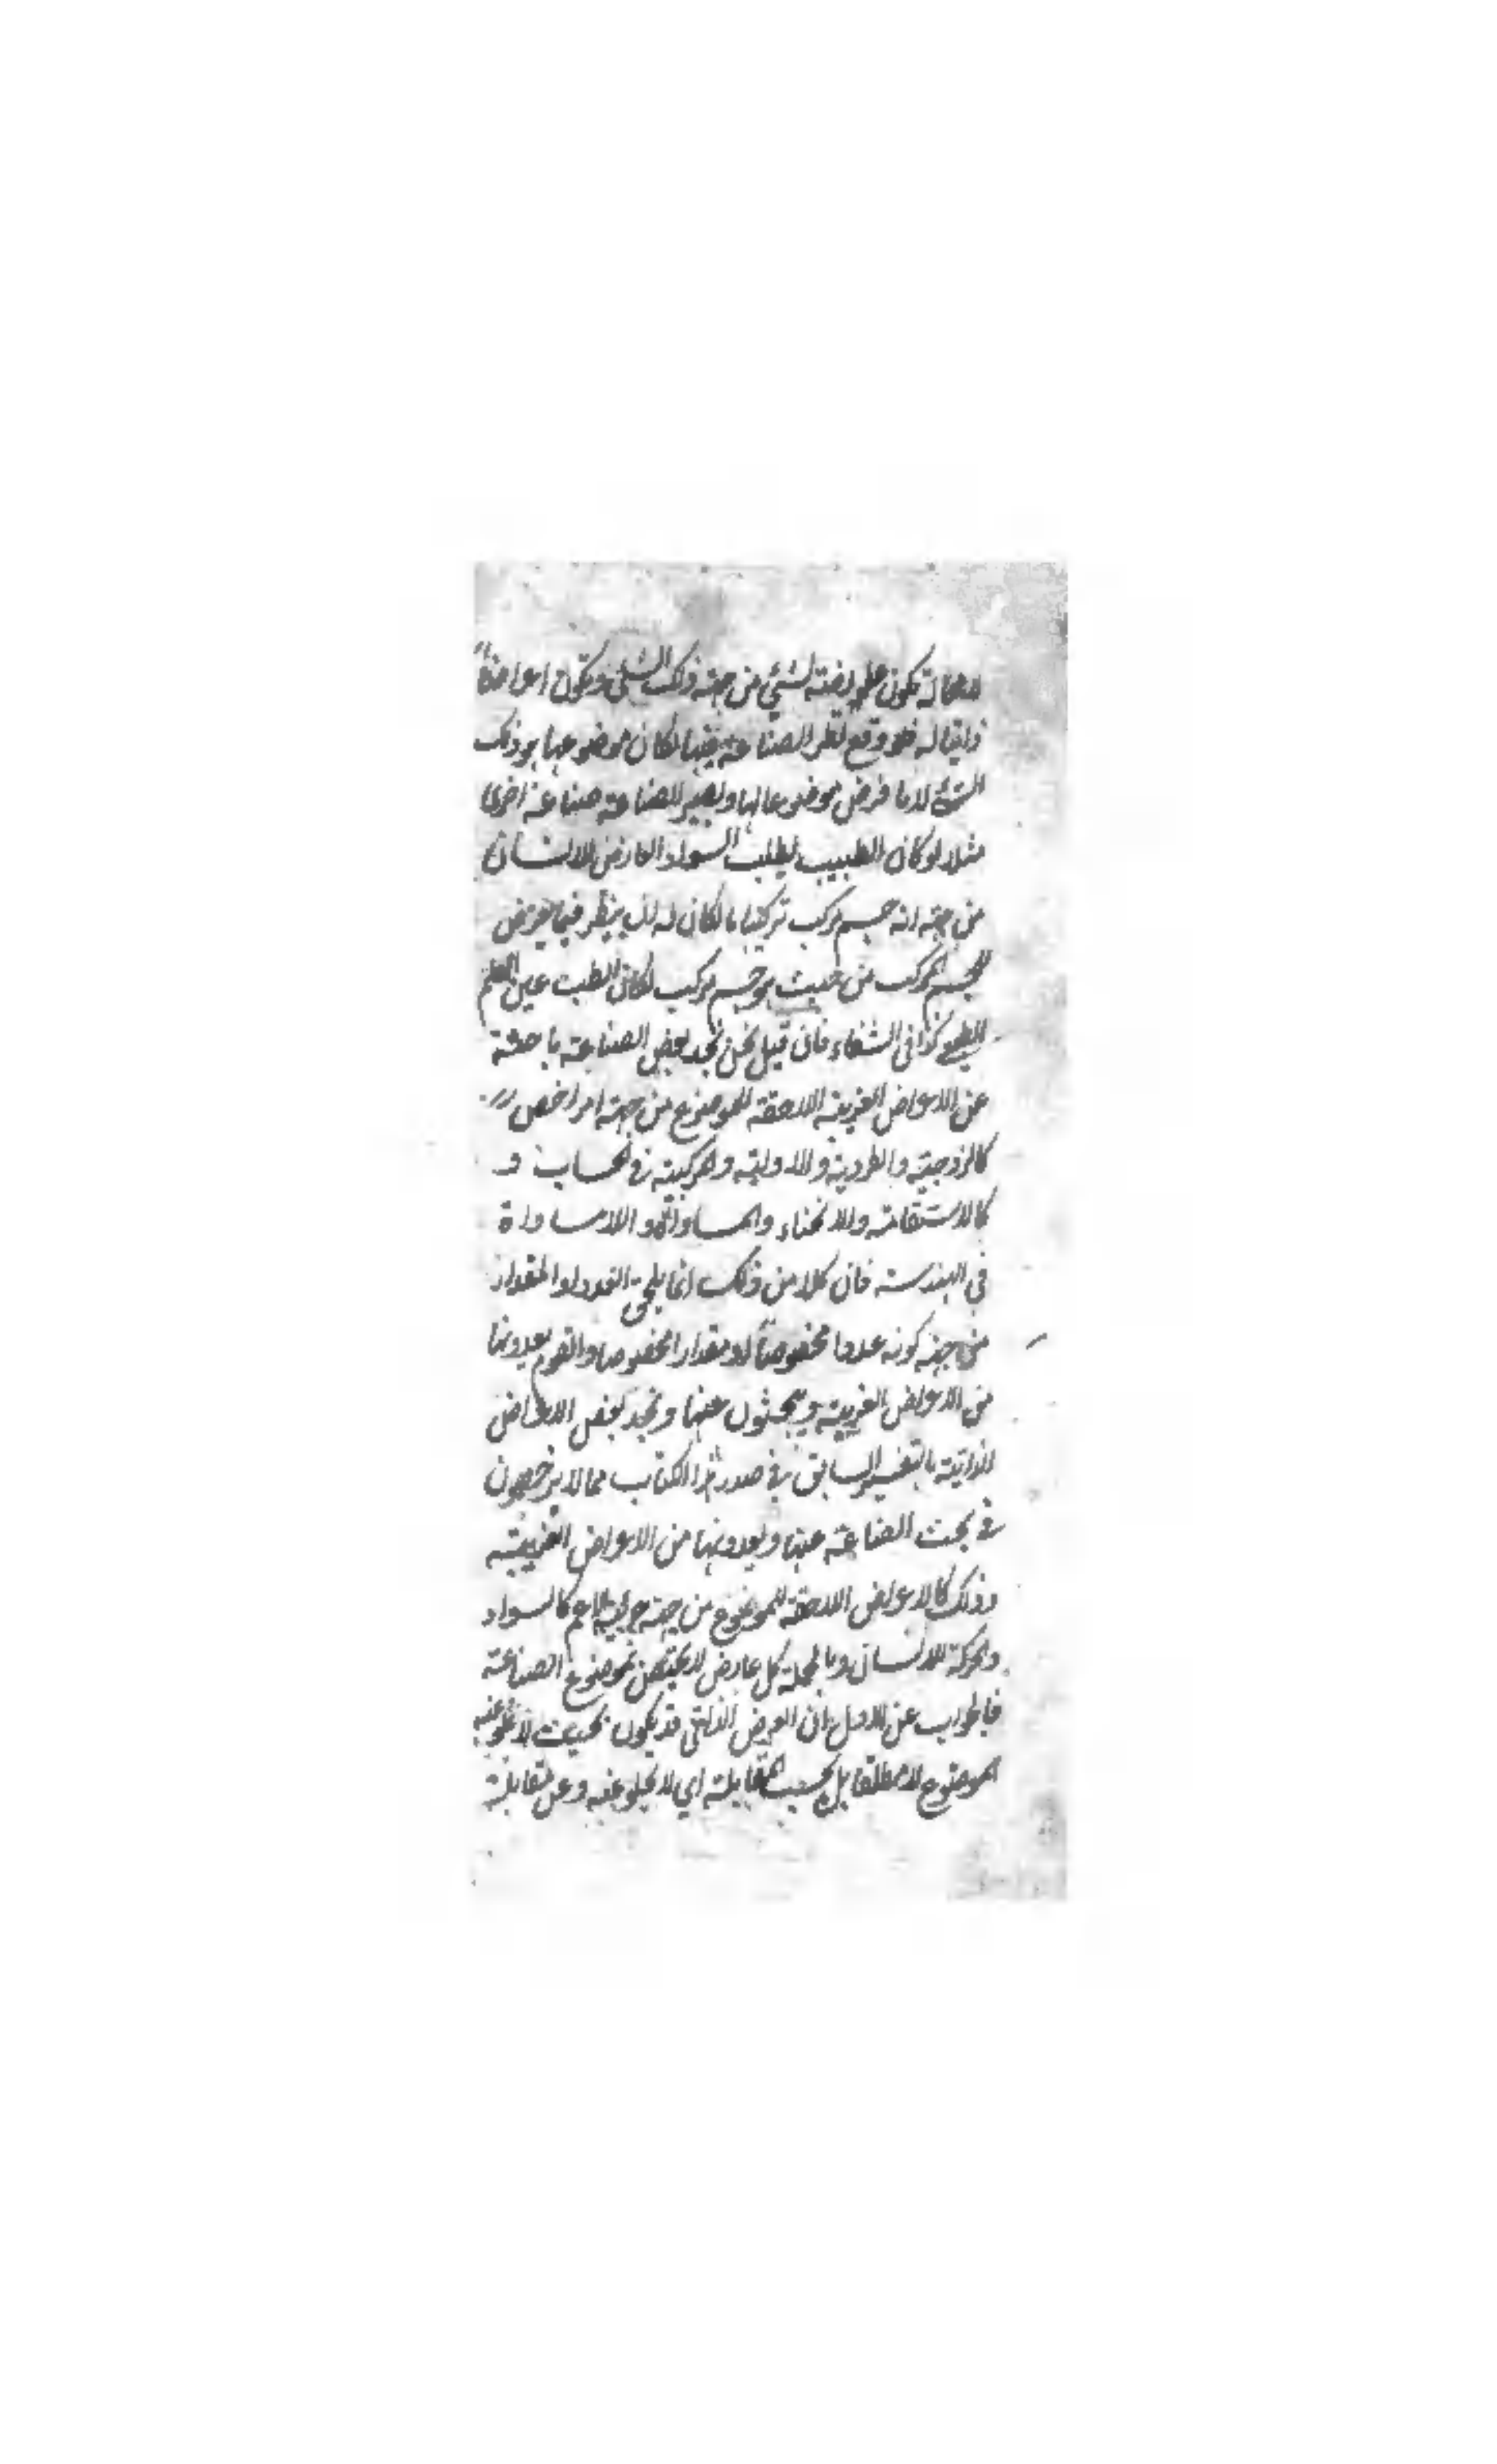 لا محالة تكون عارضة لشيء من جهة ذلك الشيء وتكون اعراضا
ذاتيا له فلو وقع نظر الصناعة فيها لكان موضوعها هو ذلك
الشيء لا ما فرض موضوعا لها ويصير الصناعة صناعة اخرى
مثلا لو كان الطبيب يطلب السواد العارض للانسان
من جهة انه جسم مركب تركيبا ما لكان له ان ينظر فيما يعرض
للجسم المركب من حيث هو جسم مركب لكان الطب عين العلم
الطبيعي كذا في الشفاء فان قيل نحن نجد بعض الصناعة باحثة
عن الاعراض الغريبة اللاحقة للموضوع من جهة امر اخص
كالزوجية والفردية والاولية والمركبية في الحساب و
كالاستقامة والانحناء والمساواة واللامساواة
في الهندسة فان كلا من ذلك انما يلحق العدد او المقدار
من جهة كونه عددا مخصوصا او مقدارا مخصوصا والقوم يعدونها
من الاعراض الغريبة ويبحثون عنها ونجد بعض الاعراض
الذاتية بالتفسير السابق في صدر هذا الكتاب مما لا يرخصون
في بحث الصناعة عنها ويعدونها من الاعراض الغريبة
وذلك كالاعراض اللاحقة للموضوع من جهة جزئه الاعم كالسواد
والحركة للانسان وبالجملة كل عارض لا يختص بموضوع الصناعة
فالجواب عن الاول ان العرض الذاتي قد يكون بحيث لا يخلو عنه
الموضوع لا مطلقا بل بحسب المقابلة اي لا يخلو عنه وعن مقابلة